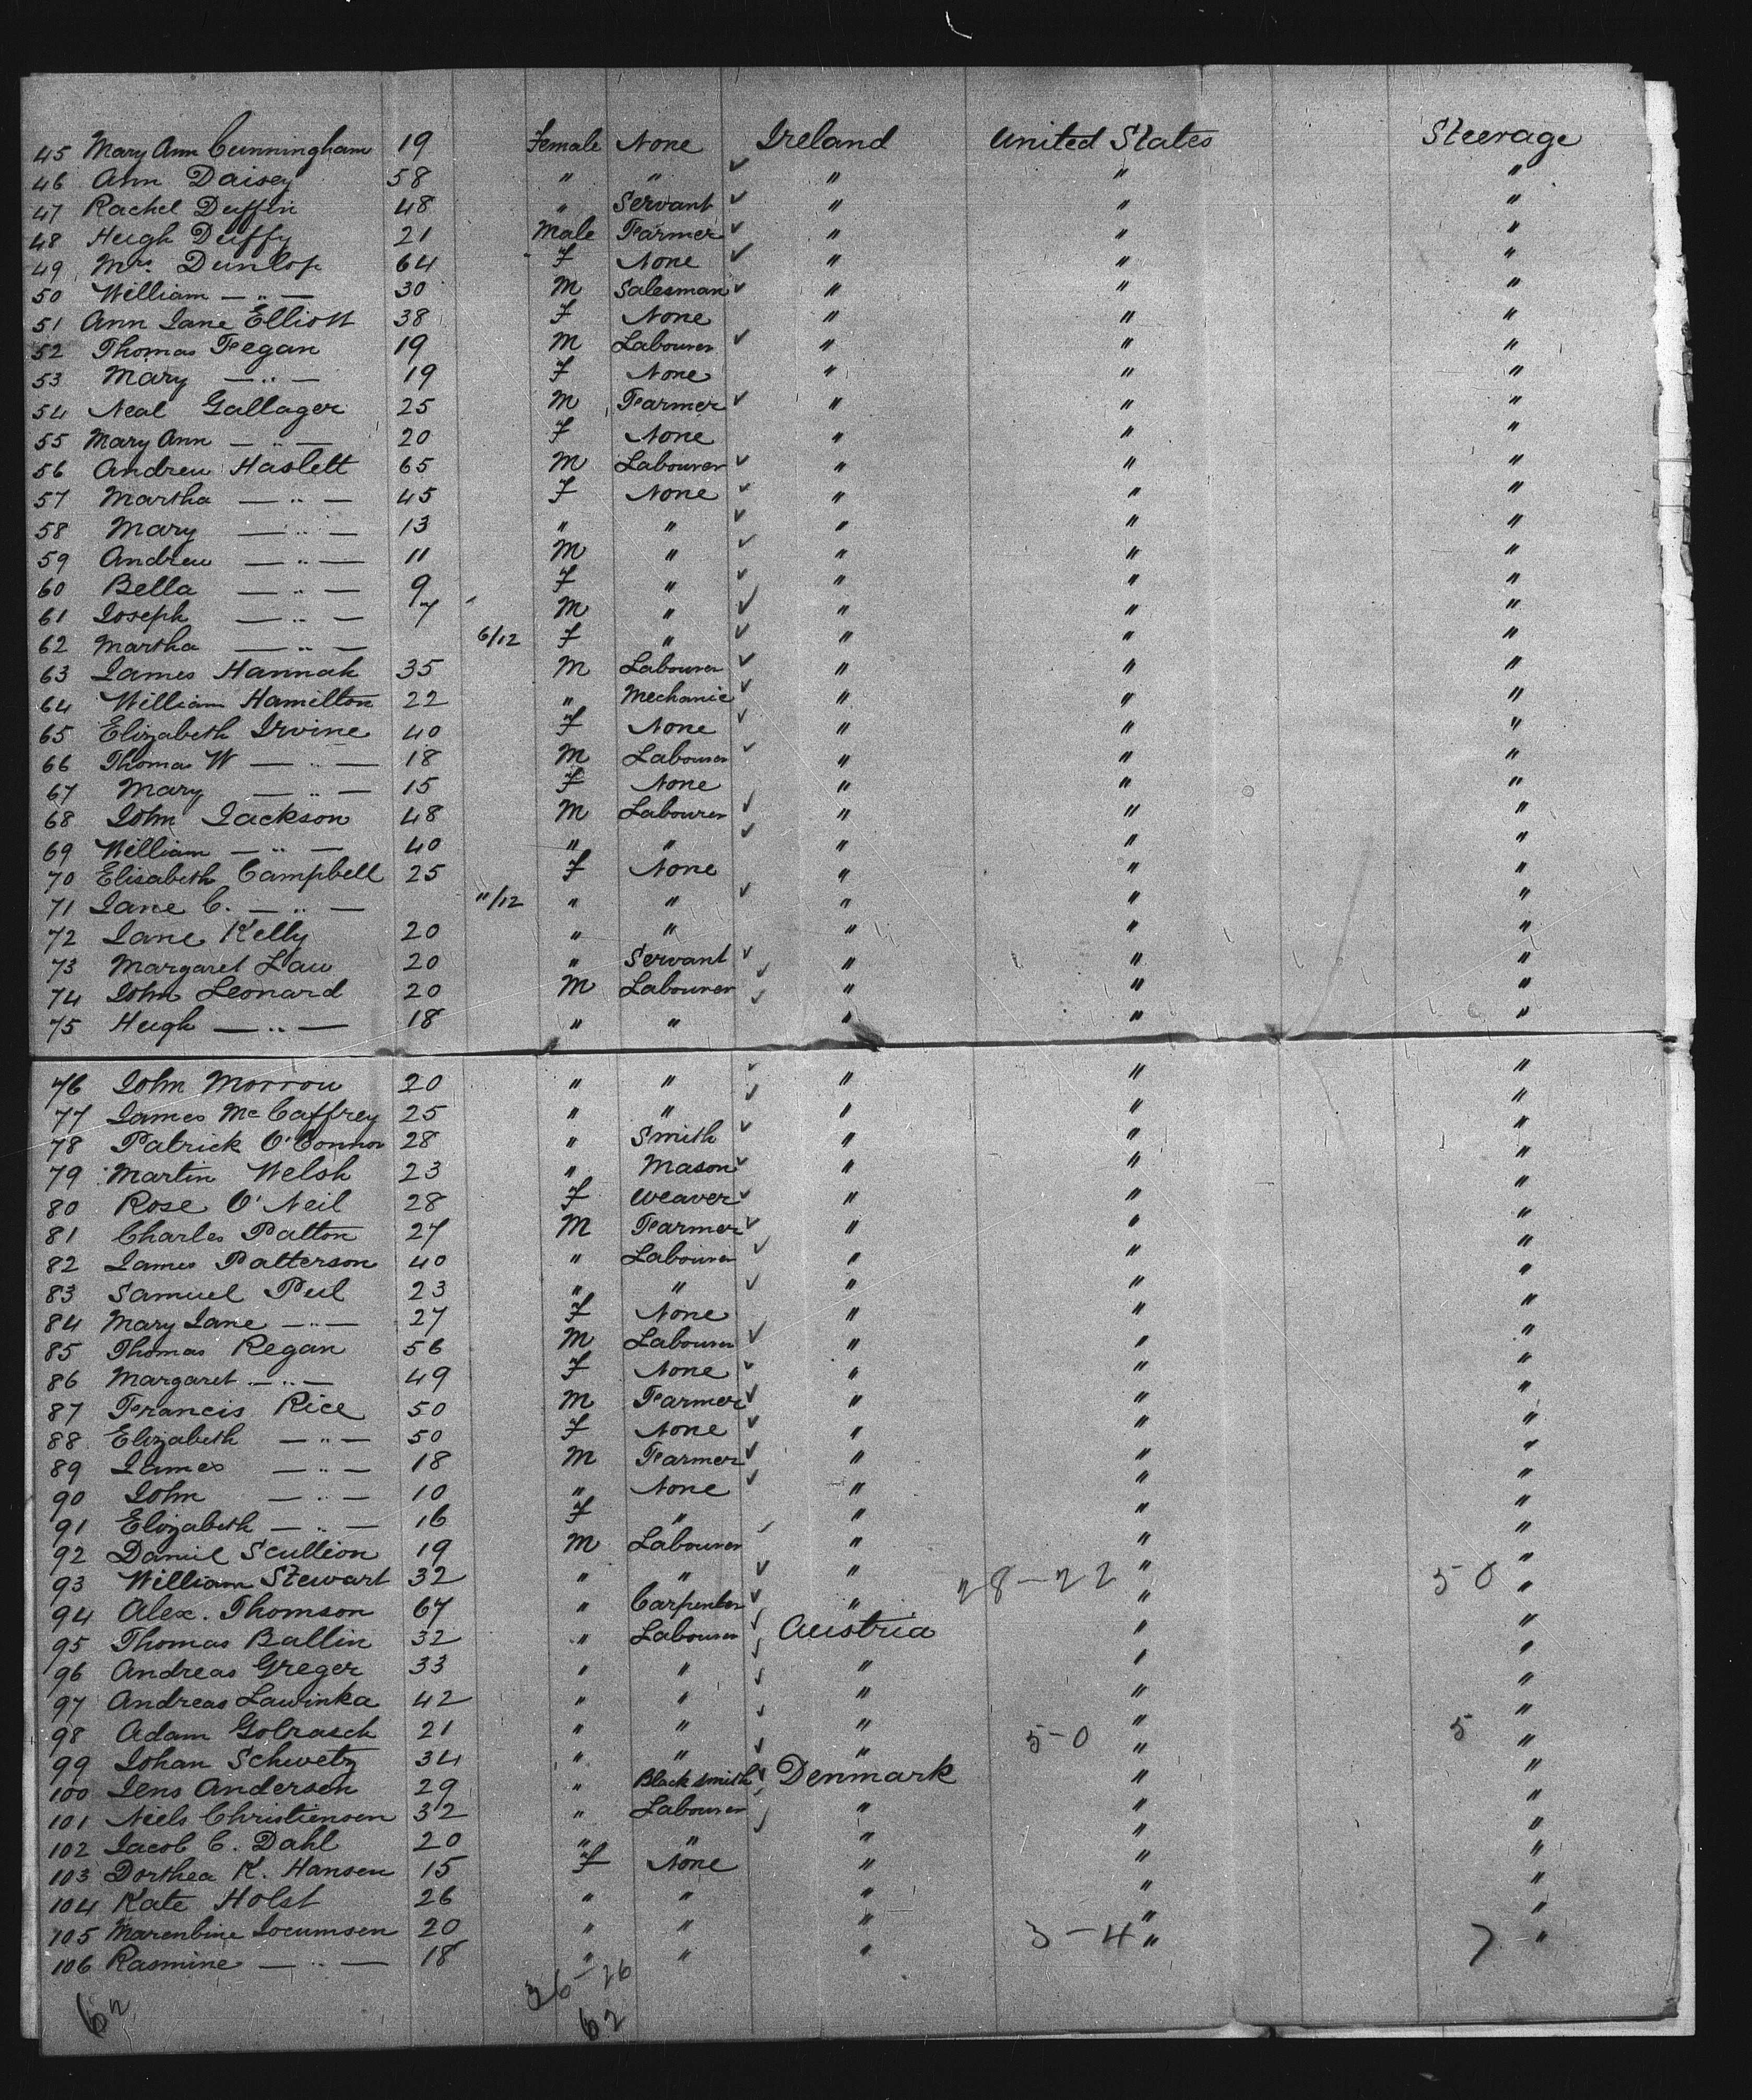 45 Mary Ann Cunningham 19 Female None Ireland United States Steerage
46 Ann Daisey 58 " " " " "
47 Rachel Duffin 48 " Servant " " "
48 Hugh Duffy 21 Male Farmer " " "
49 Mrs. Dunlop 64 F None " " "
50 William — " — 30 M Salesman " " "
51 Ann Jane Elliott 38 F None " " "
52 Thomas Fegan 19 M Labourer " " "
53 Mary — " — 19 F None " " "
54 Neal Gallager 25 M Farmer " " "
55 Mary Ann — " — 20 F None " " "
56 Andrew Haslett 65 M Labourer " " "
57 Martha — " — 45 F None " " "
58 Mary — " — 13 " " " " "
59 Andrew — " — 11 M " " " "
60 Bella — " — 9 F " " " "
61 Joseph — " — 7 M " " " "
62 Martha — " — 6/12 F " " " "
63 James Hannah 35 M Labourer " " "
64 William Hamilton 22 " Mechanic " " "
65 Elizabeth Irvine 40 F None " " "
66 Thomas W — " — 18 M Labourer " " "
67 Mary — " — 15 F None " " "
68 John Jackson 48 M Labourer " " "
69 William — " — 40 " " " " "
70 Elisabeth Campbell 25 F None " " "
71 Jane C. — " — 11/12 " " " " "
72 Jane Kelly 20 " " " " "
73 Margaret Law 20 " Servant " " "
74 John Leonard 20 M Labourer " " "
75 Hugh — " — 18 " " " " "
76 John Morrow 20 " " " " "
77 James McCaffrey 25 " " " " "
78 Patrick O'Connor 28 " Smith " " "
79 Martin Welsh 23 " Mason " " "
80 Rose O'Neil 28 F Weaver " " "
81 Charles Patton 27 M Farmer " " "
82 James Patterson 40 " Labourer " " "
83 Samuel Peel 23 " " " " "
84 Mary Jane — " — 27 F None " " "
85 Thomas Regan 56 M Labourer " " "
86 Margaret — " — 49 F None " " "
87 Francis Rice 50 M Farmer " " "
88 Elizabeth — " — 50 F None " " "
89 James — " — 18 M Farmer " " "
90 John — " — 10 " None " " "
91 Elizabeth — " — 16 F " " " "
92 Daniel Scullion 19 M Labourer " " "
93 William Stewart 32 " " " 28-22 " 50 "
94 Alex. Thomson 67 " Carpenter " " "
95 Thomas Ballin 32 " Labourer Austria " "
96 Andreas Greger 33 " " " " "
97 Andreas Lawinka 42 " " " " "
98 Adam Golrasch 21 " " " 5-0 " 5 "
99 Johan Schwetz 34 " " " " "
100 Jens Andersen 29 " Blacksmith Denmark " "
101 Niels Christiensen 32 " Labourer " " "
102 Jacob C. Dahl 20 " " " " "
103 Dorthea K. Hansen 15 F None " " "
104 Kate Holst 26 " " " " "
105 Marenbine Jocumsen 20 " " " 3-4 " 7 "
106 Rasmine — " — 18 " " " "
36-26
62 62